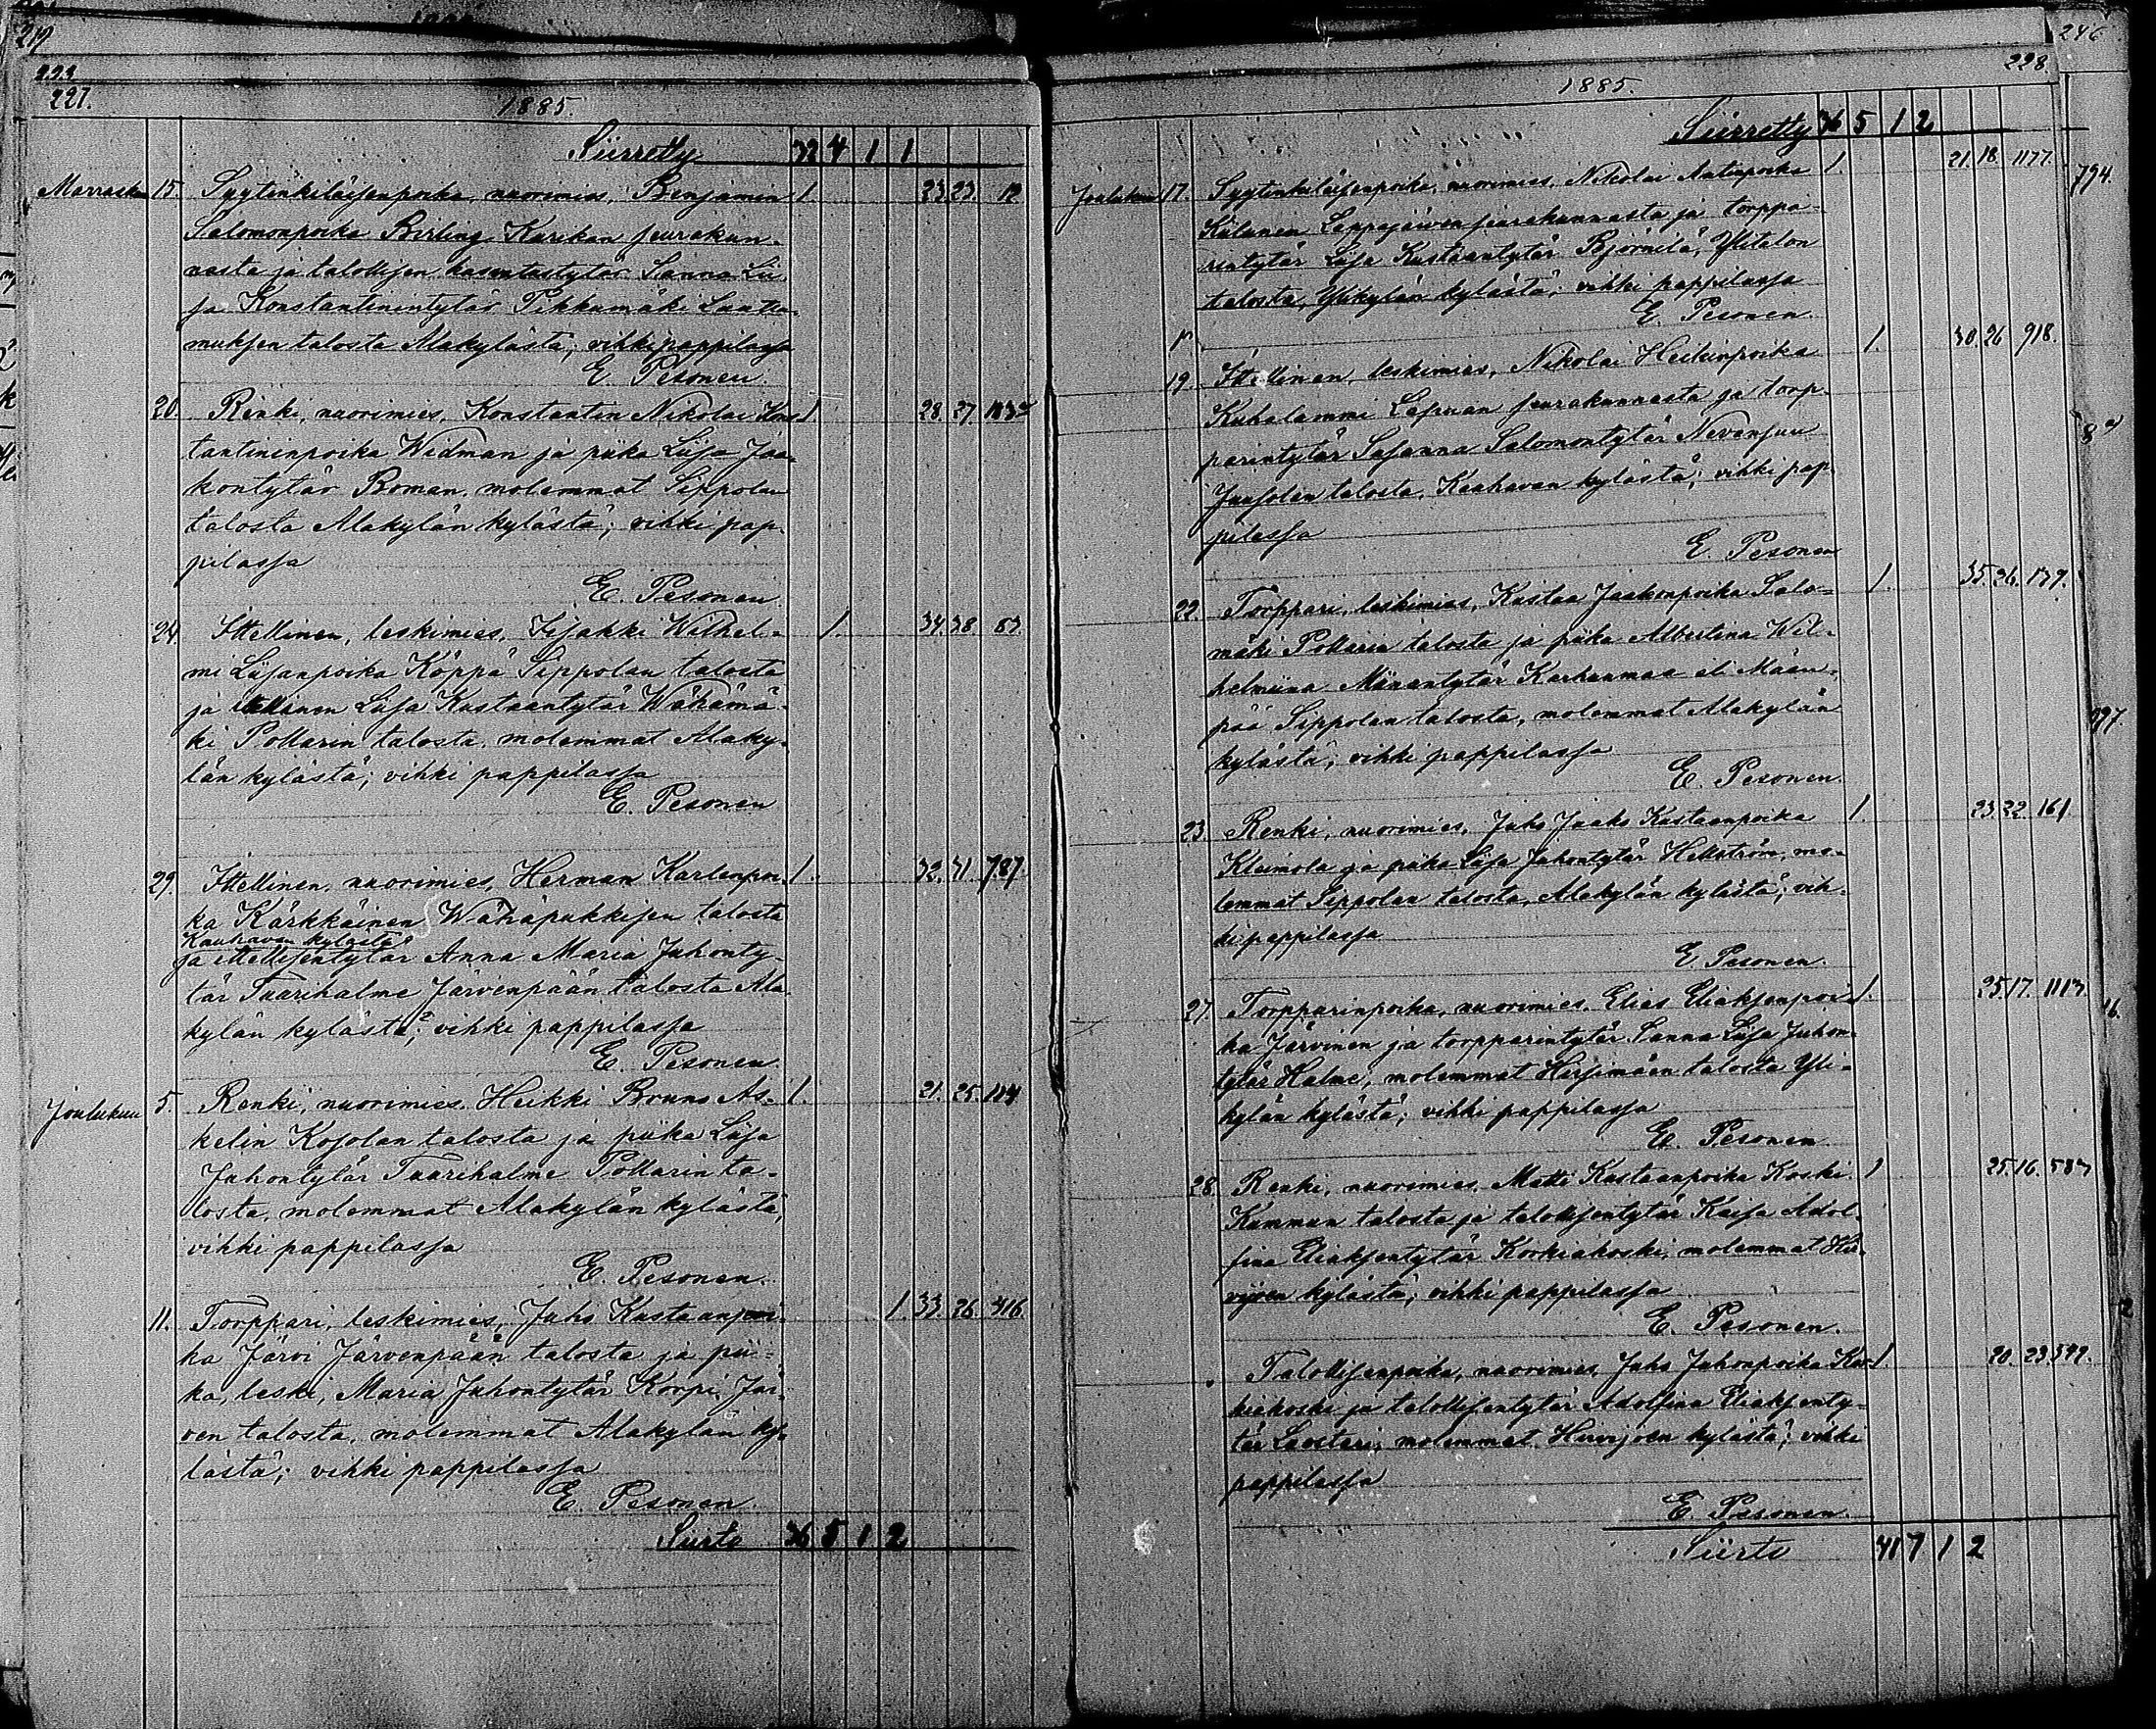 219
223
227.
1885.
Siirretty 32 4 1 1
Marraskuu 15. Syytinkiläisenpoika, nuorimies, Benjamin 1. 23. 23. 12
Salomonpoika Birling Karikan seurakun-
nasta ja talollisen kasvatustytär Sanna Lii-
sa Konstantinintytär Pikkumäki Luoma-
muksen talosta Alakylästä; vihki pappilassa
E. Pesonen.
20. Renki, nuorimies, Konstantin Nikolai Kons- 1. 28. 27.
tantininpoika Widman ja piika Liisa Jaa-
kontytär Roman, molemmat Sippolan
talosta Alakylän kylästä; vihki pap-
pilassa
E. Pesonen.
24. Ittellinen, leskimies, Iisakki Wilhel- 1. 34. 38. 83.
mi Liisanpoika Köppä Sippolan talosta
ja ittellinen Liisa Kustaantytär Wähämä-
ki Pollarin talosta, molemmat Alaky-
län kylästä; vihki pappilassa
E. Pesonen
29. Ittellinen, nuorimies, Herman Karlenpoi- 1. 32. 31. 787.
ka Kärkkäinen Wähäpukkisen talosta
Kauhavan kylästä
ja ittellisentytär Anna Maria Juhonty-
tär Tuarihalme Järvenpään talosta Ala-
kylän kylästä; vihki pappilassa
E. Pesonen.
Joulukuu 5. Renki, nuorimies, Heikki Bruno As- 1. 21. 25. 114
kelin Kosolan talosta ja piika Liisa
Juhontytär Tuarihalme Pollarin ta-
losta, molemmat Alakylän kylästä,
vihki pappilassa
E. Pesonen.
11. Torppari, leskimies, Juho Kustaanpoi- 1. 33. 26. 416.
ka Järvi Järvenpään talosta ja pii-
ka, leski, Maria Juhontytär Korpi Jär-
ven talosta, molemmat Alakylän ky-
lästä; vihki pappilassa
E. Pesonen.
Siirto 36 5 1 2
246
228
1885.
Siirretty 36 5 1 2
Joulukuu 17. Syytinkiläisenpoika, nuorimies, Nikolai Antinpoika 1. 21. 18. 1177.
794.
Kiilunen Lappajärven seurakunnasta ja torppa-
rintytär Liisa Kustaantytär Björnilä, Ylitalon
talosta, Ylikylän kylästä; vihki pappilassa
E. Pesonen.
19. Ittellinen, leskimies, Nikolai Heikinpoika 1. 30. 26. 918.
Kuhalammi Lapuan seurakunnasta ja torp-
parintytär Susanna Salomontytär Nevansuu
Juusolan talosta, Kauhavan kylästä; vihki pap-
pilassa
E. Pesonen
22. Torppari, leskimies, Kustaa Jaakonpoika Salo- 1. 35. 26. 179.
mäki Pollarin talosta ja piika Albertina Wil-
helmiina Miinantytär Karhunmaa eli Mäen-
pää Sippolan talosta, molemmat Alakylän
797.
kylästä; vihki pappilassa
E. Pesonen.
23. Renki, nuorimies, Juho Jaako Kustaanpoika 1. 23. 22. 161
Kleimola ja piika Liisa Juhontytär Hellström, mo-
lemmat Sippolan talosta, Alakylän kylästä; vih-
ki pappilassa
E. Pesonen.
27. Torpparinpoika, nuorimies, Elias Eliaksenpoi- 1. 25. 17. 1117.
16.
ka Järvinen ja torpparintytär Sanna Liisa Juhon-
tytär Halme, molemmat Hirsimäen talosta Yli-
kylän kylästä; vihki pappilassa
E. Pesonen
28. Renki, nuorimies, Matti Kustaanpoika Koski 1 25. 16. 587
Kumman talosta ja talollisentytär Kaisa Adol-
fina Eliaksentytär Korkiakoski, molemmat Hir-
vijoen kylästä; vihki pappilassa
E. Pesonen.
Talollisenpoika, nuorimies, Juho Juhonpoika Kor- 1 20. 23. 549.
kiakoski ja talollisentytär Adolfina Eliaksenty-
tär Luostari, molemmat Hirvijoen kylästä; vihki
pappilassa
E. Pesonen.
Siirto 41 7 1 2